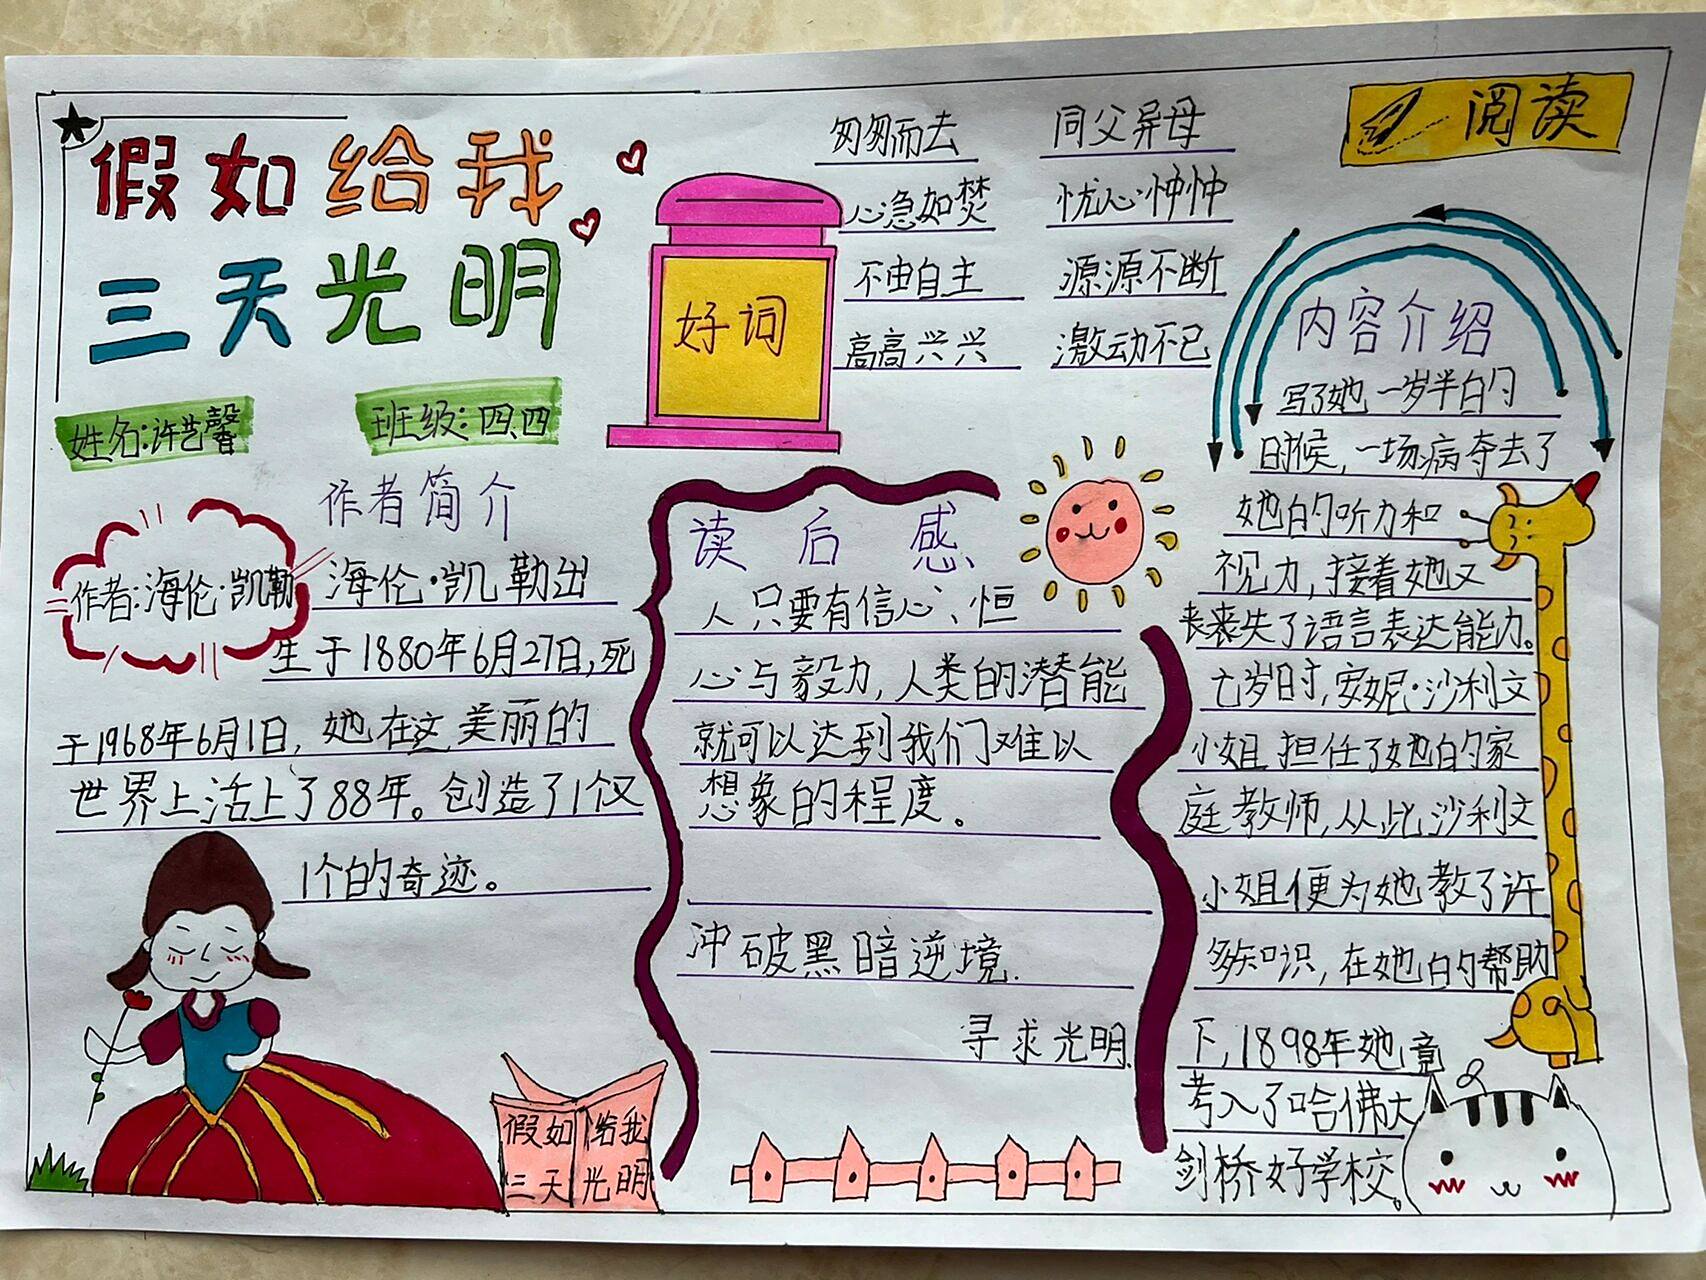 假如给我
三天光明
姓名:许艺馨
班级:四.四
好词
匆匆而去
同父异母
心急如焚
忧心忡忡
不由自主
源源不断
高高兴兴
激动不已
阅读
作者简介
作者:海伦·凯勒
海伦·凯勒出
生于1880年6月27日,死
于1968年6月1日,她在这美丽的
世界上活上了88年。创造了1个又
1个的奇迹。
假如给我
三天光明
读后感
人只要有信心、恒
心与毅力,人类的潜能
就可以达到我们难以
想象的程度。
冲破黑暗逆境.
寻求光明.
内容介绍
写了她一岁半的
时候,一场病夺去了
她的听力和
视力,接着她又
丧丧失了语言表达能力。
七岁时,安妮·沙利文
小姐担任了她的家
庭教师,从此沙利文
小姐便为她教了许
多知识,在她的帮助
下,1898年她竟
考入了哈佛大
剑桥好学校。